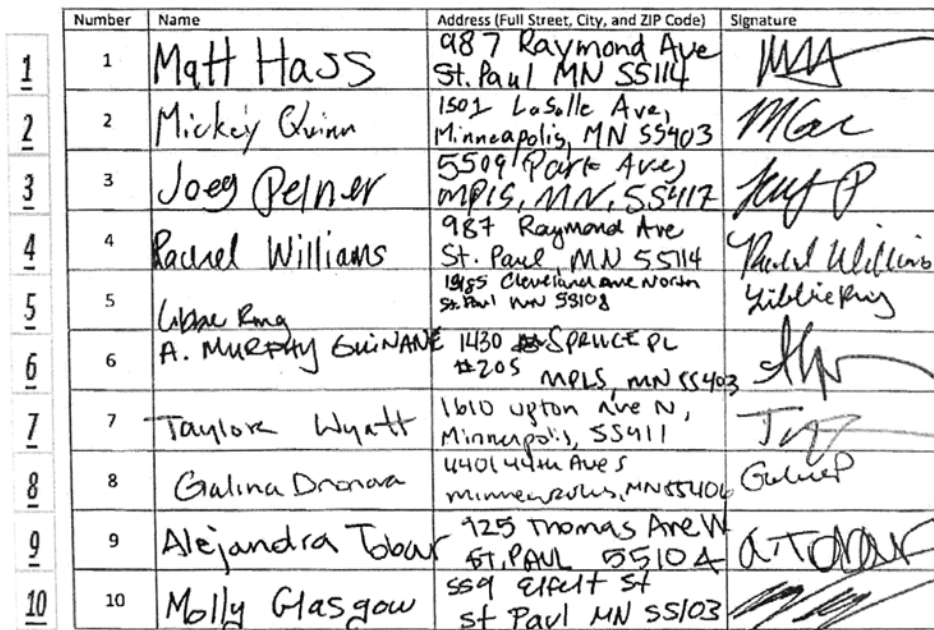 Number Name Address (Full Street, City, and ZIP Code) Signature
1 1 Matt Hass 987 Raymond Ave
St. Paul MN 55114
2 2 Mickey Quinn 1501 LaSalle Ave,
Minneapolis, MN 55403
3 3 Joey Pelner 5509 Park Ave,
MPLS, MN, 55417
4 4 Rachel Williams 987 Raymond Ave
St. Paul, MN 55114 Rachel Williams
5 5 Libbie Ring Cleveland Ave North
St. Paul MN 55108 Libbie Ring
6 6 A. MURPHY GUINANE 1430 SPRUCE PL
#205 MPLS, MN 55403
7 7 Taylore Wyatt 1610 Upton Ave N,
Minneapolis, 55411
8 8 Galina Dronova 4401 44th Ave S
Minneapolis, MN 55406
9 9 Alejandra Tobar 925 Thomas Ave W
ST. PAUL 55104 A. Tobar
10 10 Molly Glasgow 559 Elfelt St
St Paul MN 55103